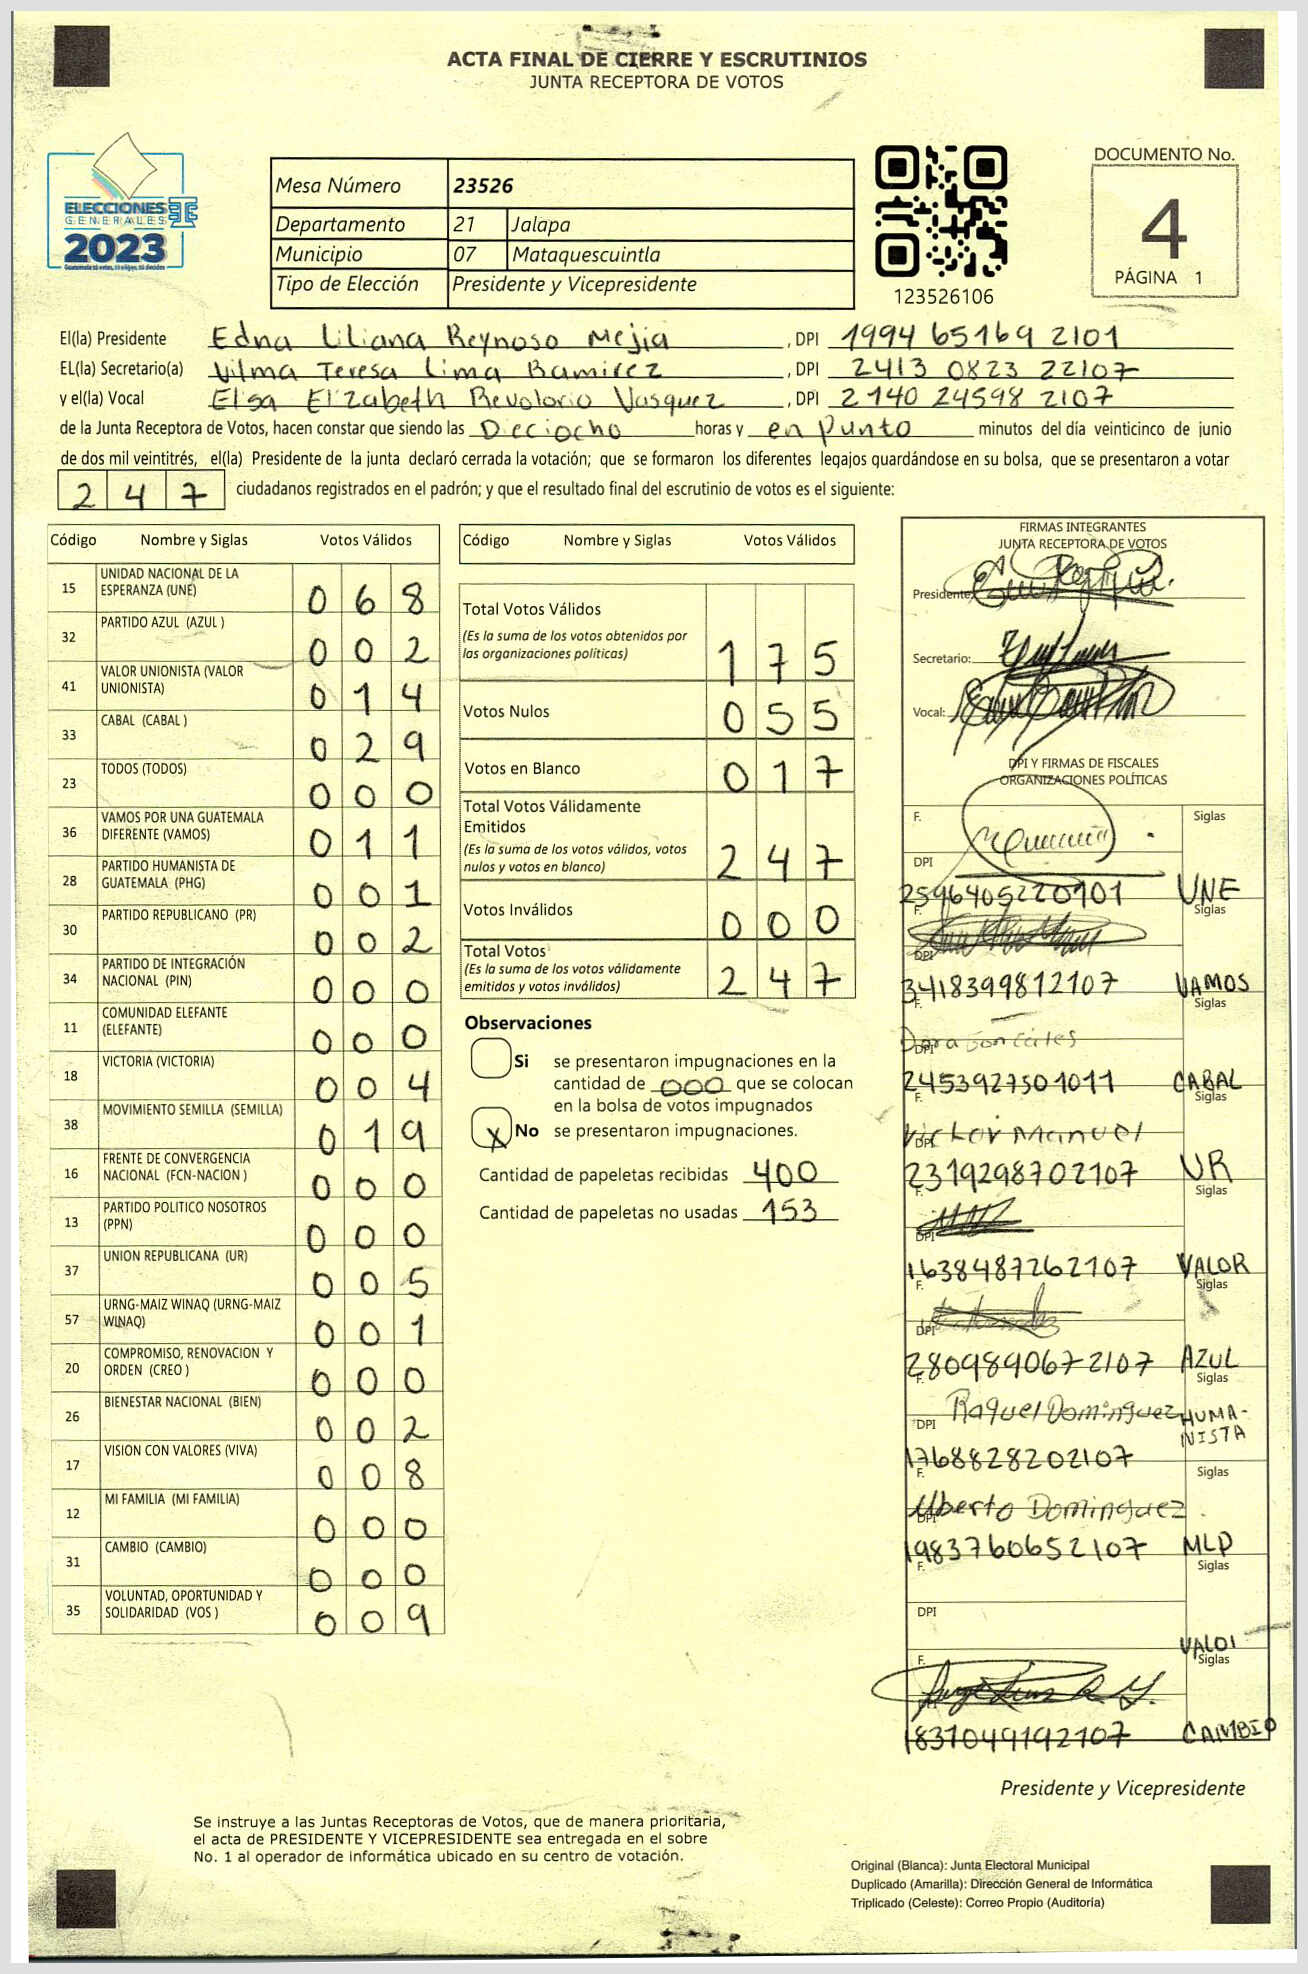 ACTA FINAL DE CIERRE Y ESCRUTINIOS
JUNTA RECEPTORA DE VOTOS
ELECCIONES
GENERALES
2023
Mesa Número 23526
Departamento 21 Jalapa
Municipio 07 Mataquescuintla
Tipo de Elección Presidente y Vicepresidente
123526106
DOCUMENTO No.
4
PÁGINA 1
El(la) Presidente Edna Liliana Reynoso Mejia, DPI 1994 65169 2101
EL(la) Secretario(a) Vilma Teresa Lima Ramirez, DPI 2413 0823 22107
y el(la) Vocal Elsa Elizabeth Revolorio Vasquez, DPI 2140 24598 2107
de la Junta Receptora de Votos, hacen constar que siendo las Dieciocho horas y en punto minutos del día veinticinco de junio
de dos mil veintitrés, el(la) Presidente de la junta declaró cerrada la votación; que se formaron los diferentes legajos guardándose en su bolsa, que se presentaron a votar
247 ciudadanos registrados en el padrón; y que el resultado final del escrutinio de votos es el siguiente:
Código Nombre y Siglas Votos Válidos
15 UNIDAD NACIONAL DE LA ESPERANZA (UNE) 068
32 PARTIDO AZUL (AZUL ) 002
41 VALOR UNIONISTA (VALOR UNIONISTA) 014
33 CABAL (CABAL ) 029
23 TODOS (TODOS) 000
36 VAMOS POR UNA GUATEMALA DIFERENTE (VAMOS) 011
28 PARTIDO HUMANISTA DE GUATEMALA (PHG) 001
30 PARTIDO REPUBLICANO (PR) 002
34 PARTIDO DE INTEGRACIÓN NACIONAL (PIN) 000
11 COMUNIDAD ELEFANTE (ELEFANTE) 000
18 VICTORIA (VICTORIA) 004
38 MOVIMIENTO SEMILLA (SEMILLA) 019
16 FRENTE DE CONVERGENCIA NACIONAL (FCN-NACION ) 000
13 PARTIDO POLITICO NOSOTROS (PPN) 000
37 UNION REPUBLICANA (UR) 005
57 URNG-MAIZ WINAQ (URNG-MAIZ WINAQ) 001
20 COMPROMISO, RENOVACION Y ORDEN (CREO ) 000
26 BIENESTAR NACIONAL (BIEN) 002
17 VISION CON VALORES (VIVA) 008
12 MI FAMILIA (MI FAMILIA) 000
31 CAMBIO (CAMBIO) 000
35 VOLUNTAD, OPORTUNIDAD Y SOLIDARIDAD (VOS ) 009
Código Nombre y Siglas Votos Válidos
Total Votos Válidos 175
(Es la suma de los votos obtenidos por
las organizaciones políticas)
Votos Nulos 055
Votos en Blanco 017
Total Votos Válidamente
Emitidos 247
(Es la suma de los votos válidos, votos
nulos y votos en blanco)
Votos Inválidos 000
Total Votos 247
(Es la suma de los votos válidamente
emitidos y votos inválidos)
Observaciones
Si se presentaron impugnaciones en la
cantidad de 000 que se colocan
en la bolsa de votos impugnados
X No se presentaron impugnaciones.
Cantidad de papeletas recibidas 400
Cantidad de papeletas no usadas 153
FIRMAS INTEGRANTES
JUNTA RECEPTORA DE VOTOS
Presidente:
Secretario:
Vocal:
DPI Y FIRMAS DE FISCALES
ORGANIZACIONES POLÍTICAS
F. Siglas
DPI
2596405220101 UNE
F. Siglas
DPI
3418399812107 VAMOS
F. Siglas
DPI
2453927501011 CABAL
F. Siglas
Victor Manuel
DPI
2319298702107 UR
F. Siglas
DPI
1638487262107 VALOR
F. Siglas
DPI
2809890672107 AZUL
F. Siglas
DPI Raquel Dominguez HUMA-
NISTA
1768828202107
F. Siglas
Uberto Dominguez
DPI
1983760652107 MLP
F. Siglas
DPI
VALOI
F. Siglas
1831049192107 CAMBIO
Presidente y Vicepresidente
Se instruye a las Juntas Receptoras de Votos, que de manera prioritaria,
el acta de PRESIDENTE Y VICEPRESIDENTE sea entregada en el sobre
No. 1 al operador de informática ubicado en su centro de votación.
Original (Blanca): Junta Electoral Municipal
Duplicado (Amarilla): Dirección General de Informática
Triplicado (Celeste): Correo Propio (Auditoría)